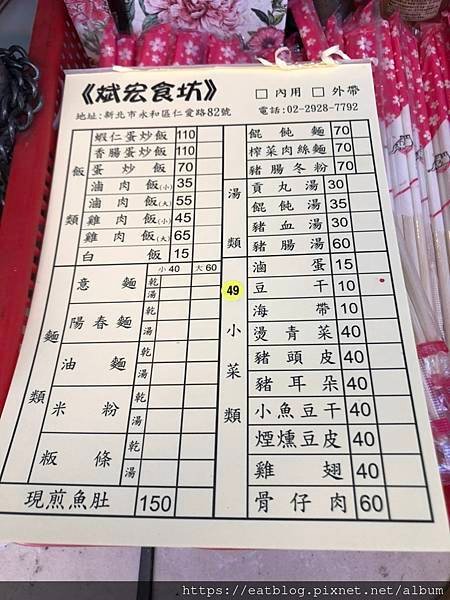 《斌宏食坊》
□內用 □外帶
地址:新北市永和區仁愛路82號
電話:02-2928-7792
飯類
蝦仁蛋炒飯 110
香腸蛋炒飯 110
蛋炒飯 70
滷肉飯(小) 35
滷肉飯(大) 55
雞肉飯(小) 45
雞肉飯(大) 65
白飯 15
麵類
小40 大60
意麵 乾 湯
陽春麵 乾 湯
油麵 乾 湯
米粉 乾 湯
粄條 乾 湯
現煎魚肚 150
餛飩麵 70
榨菜肉絲麵 70
豬腸冬粉 70
湯類
貢丸湯 30
餛飩湯 35
豬血湯 30
豬腸湯 60
49
小菜類
滷蛋 15
豆干 10
海帶 10
燙青菜 40
豬頭皮 40
豬耳朵 40
小魚豆干 40
煙燻豆皮 40
雞翅 40
骨仔肉 60
https://eatblog.pixnet.net/album